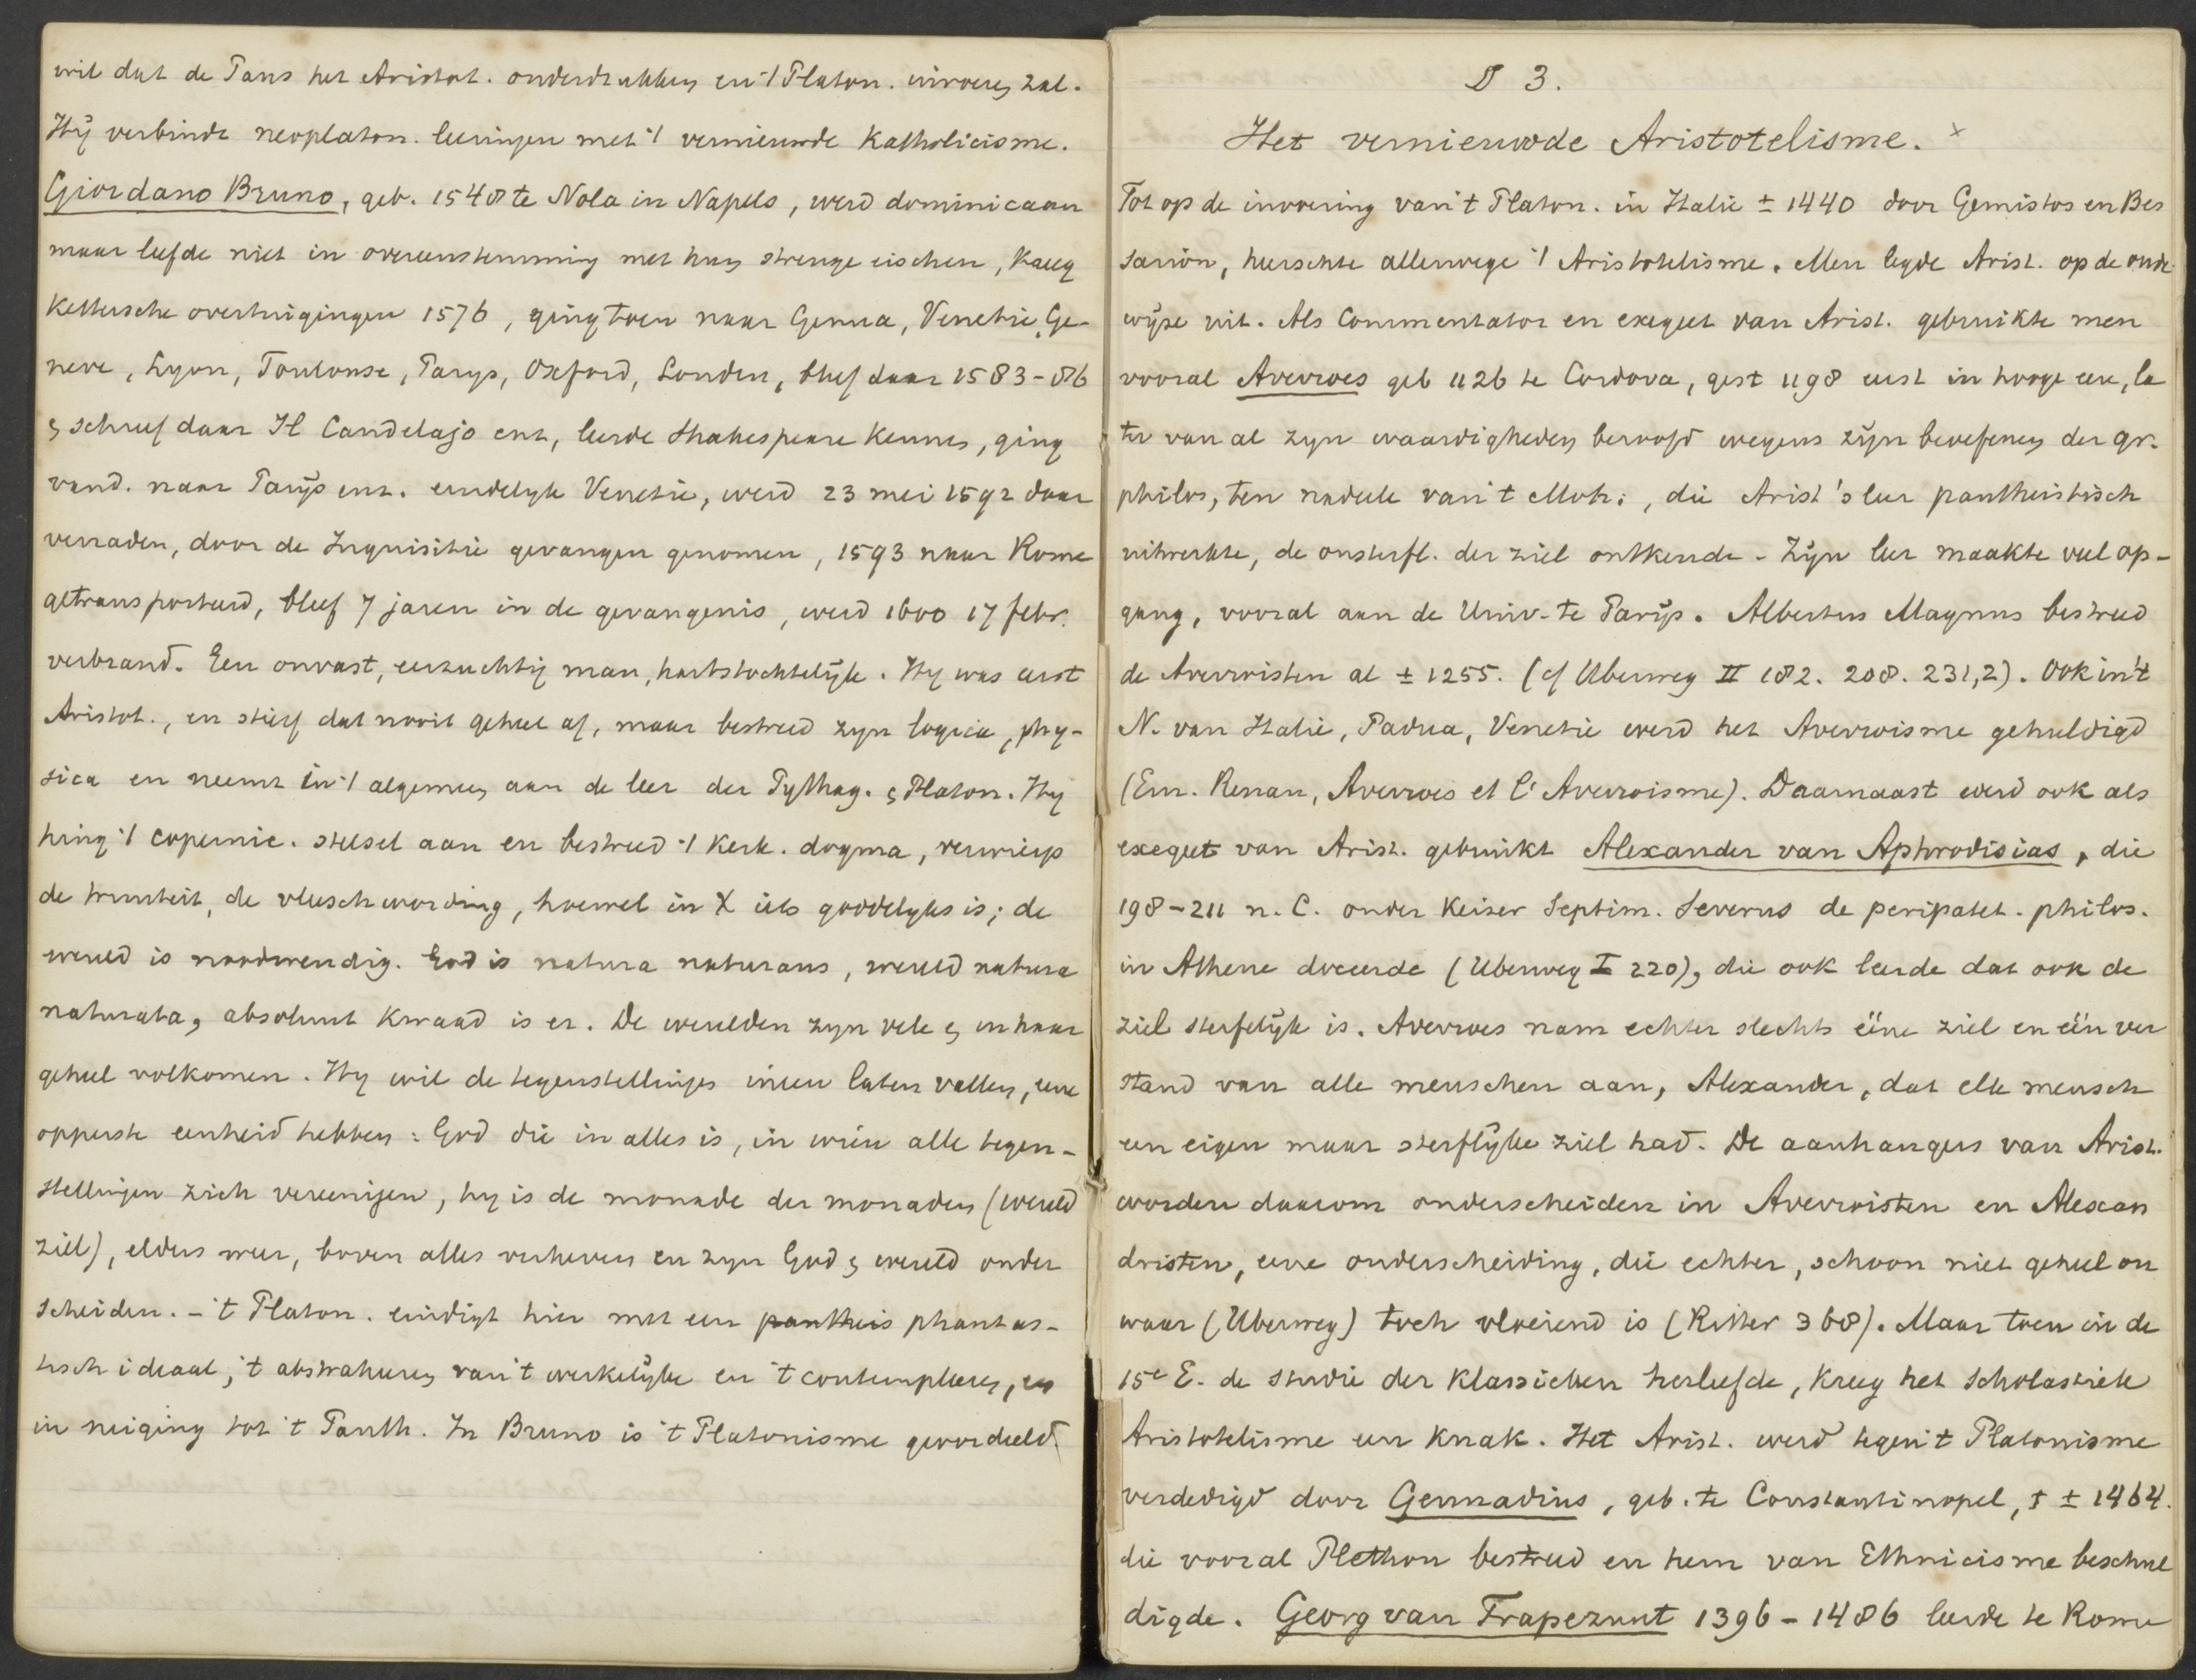 wil dat de Paus het Aristot. onderdrukken en 't Platon. invoeren zal.
Hij verbindt neoplaton. leeringen met 't vernieuwde Katholicisme.
Giordano Bruno, geb. 1548 te Nola in Napels, werd dominicaan
maar leefde niet in overeenstemming met hun strenge eischen, kreeg
kettersche overtuigingen 1576, ging toen naar Genua, Venetie, Ge-
neve, Lyon, Toulouse, Parys, Oxford, Londen, bleef daar 1583-86
& schreef daar Il Candelajo enz, leerde Shakespeare kennen, ging
vand. naar Parijs enz. eindelyk Venetie, werd 23 mei 1592 daar
verraden, door de Inquisitie gevangen genomen, 1593 naar Rome
getransporteerd, bleef 7 jaren in de gevangenis, werd 1600 17 febr.
verbrand. Een onvast, eerzuchtig man, hartstochtelijk. Hy was eerst
Aristot., en stierf dat nooit geheel af, maar bestreed zyn logica, phy-
sica en neemt in 't algemeen aan de leer der Pythag. & Platon. Hy
hing 't copernic. stelsel aan en bestreed 't Kerk. dogma, verwierp
de triniteit, de vleeschwording, hoewel in X iets goddelyks is; de
wereld is noodwendig. God is natura naturans, wereld natura
naturata, absoluut kwaad is er. De werelden zyn vele & in haar
geheel volkomen. Hy wil de tegenstellingen ineen laten vallen, eene
opperste eenheid hebben: God die in alles is, in wien alle tegen-
stellingen zich vereenigen, hy is de monade der monaden (wereld
ziel), elders weer, boven alles verheven en zyn God & wereld onder
scheiden. - 't Platon. eindigt hier met een pantheis phantas-
tisch ideaal, 't abstraheeren van 't werkelijke en 't contempleeren, en
in neiging tot 't Panth. In Bruno is 't Platonisme geoordeeld.
§ 3.
Het vernieuwde Aristotelisme. x
Tot op de invoering van 't Platon. in Italie ± 1440 door Gemistos en Bes
sarion, heerschte allerwege 't Aristotelisme. Men legde Arist. op de oude
wijze uit. Als Commentator en exegeet van Arist. gebruikte men
vooral Averroes geb 1126 te Cordova, gest 1198 eerst in hooge eere, la
ter van al zyn waardigheden beroofd wegens zijn beoefenen der gr.
philos, ten nadeele van 't Moh., die Arist's leer pantheistisch
uitwerkte, de onsterfl. der ziel ontkende - Zijn leer maakte veel op-
gang, vooral aan de Univ. te Parijs. Albertus Magnus bestreed
de Averroisten al ± 1255. (cf Uberweg II 182. 208. 231,2). Ook in 't
N. van Italie, Padua, Venetie werd het Averroisme gehuldigd
(Ern. Renan, Averroes et l'Averroisme). Daarnaast werd ook als
exegeet van Arist. gebruikt Alexander van Aphrodisias, die
198-211 n. C. onder Keizer Septim. Severus de peripatet. philos.
in Athene doceerde (Uberweg I 220), die ook leerde dat ook de
ziel sterfelijk is. Averroes nam echter slechts ééne ziel en één ver
stand van alle menschen aan, Alexander, dat elk mensch
een eigen maar sterflijke ziel had. De aanhangers van Arist.
worden daarom onderscheiden in Averroisten en Alexan
dristen, eene onderscheiding, die echter, schoon niet geheel on
waar (Uberweg) toch vloeiend is (Ritter 368). Maar toen in de
15e E. de studie der klassieken herleefde, kreeg het scholastiek
Aristotelisme een knak. Het Arist. werd tegen 't Platonisme
verdedigd door Gennadius, geb. te Constantinopel, † ± 1464.
die vooral Plethon bestreed en hem van Ethnicisme beschul
digde. Georg van Trapezunt 1396-1486 leerde te Rome